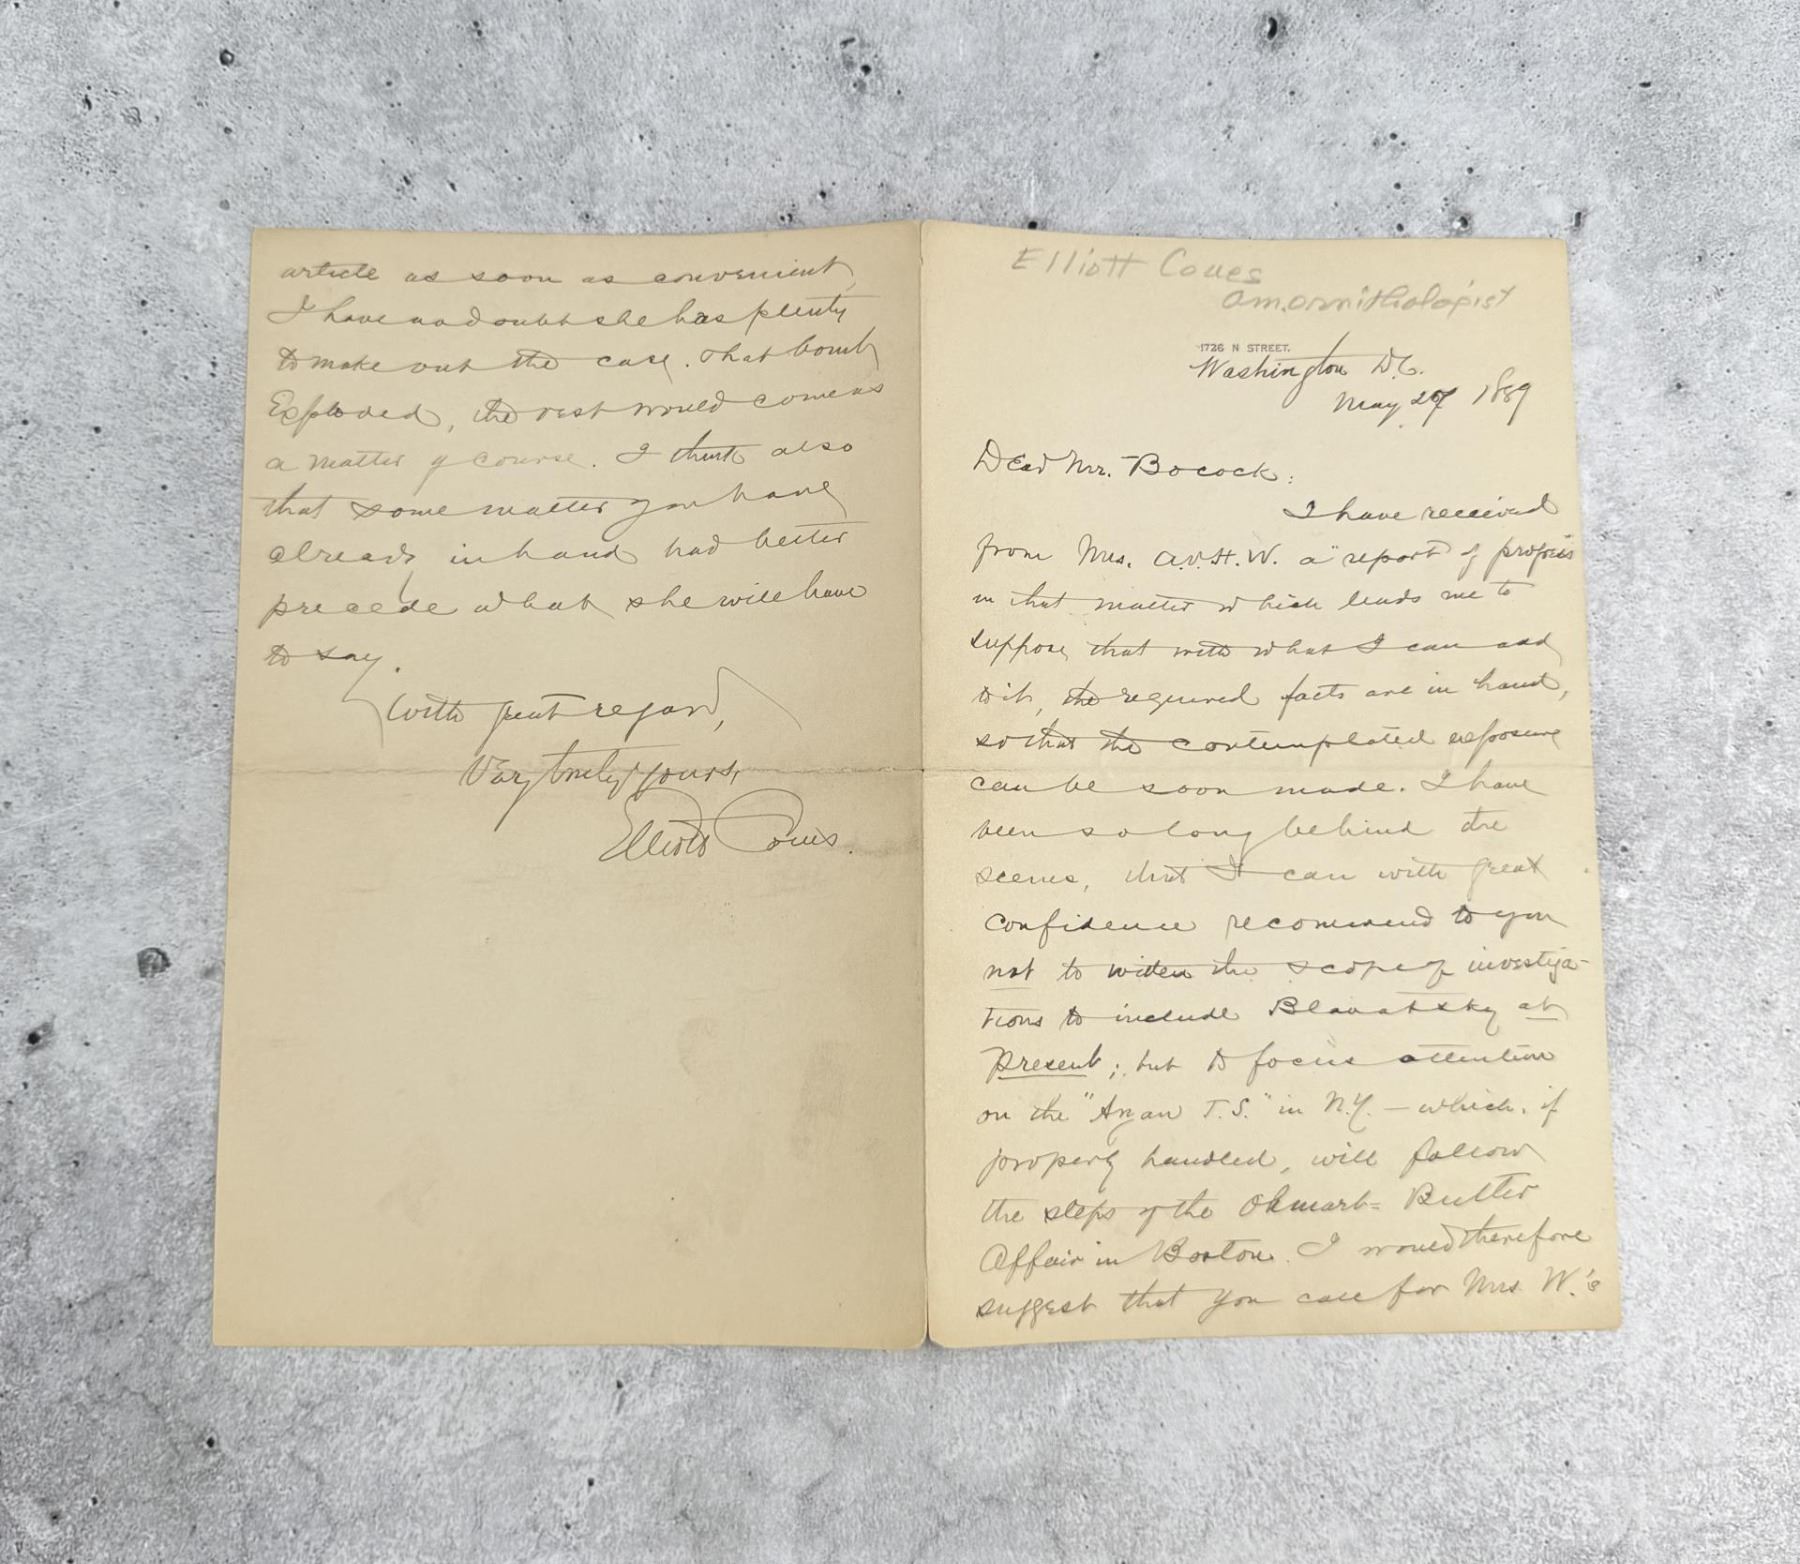 Elliott Coues
Am. ornithologist
1726 N STREET.
Washington D.C.
May 1889
Dear Mr. Bocock:
I have received
from Mrs. A.V.H.W. a "report of progress
in that matter which leads me to
suppose that with what I can add
to it, the required facts are in hand,
so that the contemplated exposure
can be soon made. I have
been so long behind the
scenes, that I can with great
confidence recommend to you
not to widen the scope of investiga-
tions to include Blavatsky at
present; but to focus attention
on the "Aryan T.S." in N.Y. — which, if
properly handled, will follow
the steps of the Ohmart-Butler
Affair in Boston. I would therefore
suggest that you call for Mrs W.'s
article as soon as convenient,
I have no doubt she has plenty
to make out the case. That bomb
Exploded, the rest would come as
a matter of course. I think also
that some matter you have
already in hand had better
precede what she will have
to say.
With great regard,
Very truly yours,
Elliott Coues.